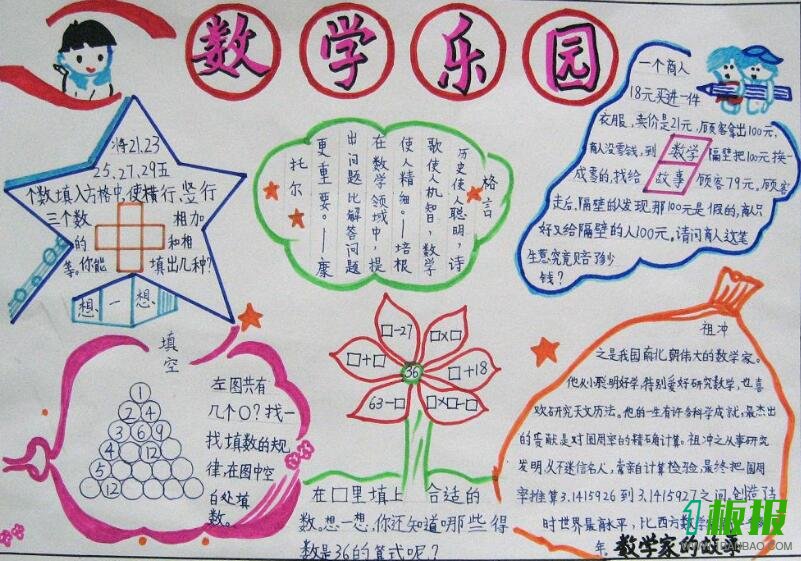 数学乐园
将21.23
25.27.29五
个数填入方格中,使横行、竖行
三个数 相加
的 和相
等。你能 填出几种?
想一想
格言
历史使人聪明,诗
歌使人机智,数学
使人精细。——培根
在数学领域中,提
出问题比解答问题
更重要。——康
托尔
一个商人
18元买进一件
衣服,卖价是21元,顾客拿出100元,
商人没零钱,到 数学 隔壁把100元换一
成零的,找给 故事 顾客79元,顾客
走后,隔壁的发现,那100元是假的,商人只
好又给隔壁的人100元。请问商人这笔
生意究竟赔多少
钱?
填空
1
2 4
3 6 9
4 12
5
12
左图共有
几个O?找一
找填数的规
律,在图中空
白处填
数。
□-27
□x□
□+□
36
□+18
63-□
□x□-□
在口里填上 合适的
数。想一想,你还知道哪些得
数是36的算式呢?
祖冲
之是我国南北朝伟大的数学家。
他从小聪明好学,特别爱好研究数学,也喜
欢研究天文历法。他的一生有许多科学成就,最杰出
的贡献是对圆周率的精确计算。祖冲之从事研究
发明,从不迷信名人,常亲自计算检验,最终把圆周
率推算3.1415926到3.1415927之间,创造了当
时世界最高水平,比西方数学
年.
数学家的故事
板报